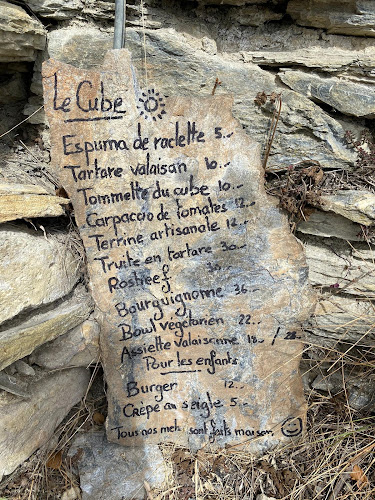 Le Cube
Espuma de raclette 5.-
Tartare valaisan 10.-
Tommette du cube 10.-
Carpaccio de tomates 12.-
Terrine artisanale 12.-
Truite en tartare 30.-
Rosbeef 30.-
Bourguignonne 36.-
Bowl végétarien 22.-
Assiette valaisanne 19.- / 28.-
Pour les enfants
Burger 12.-
Crêpe au seigle 5.-
Tous nos mets sont faits maison.